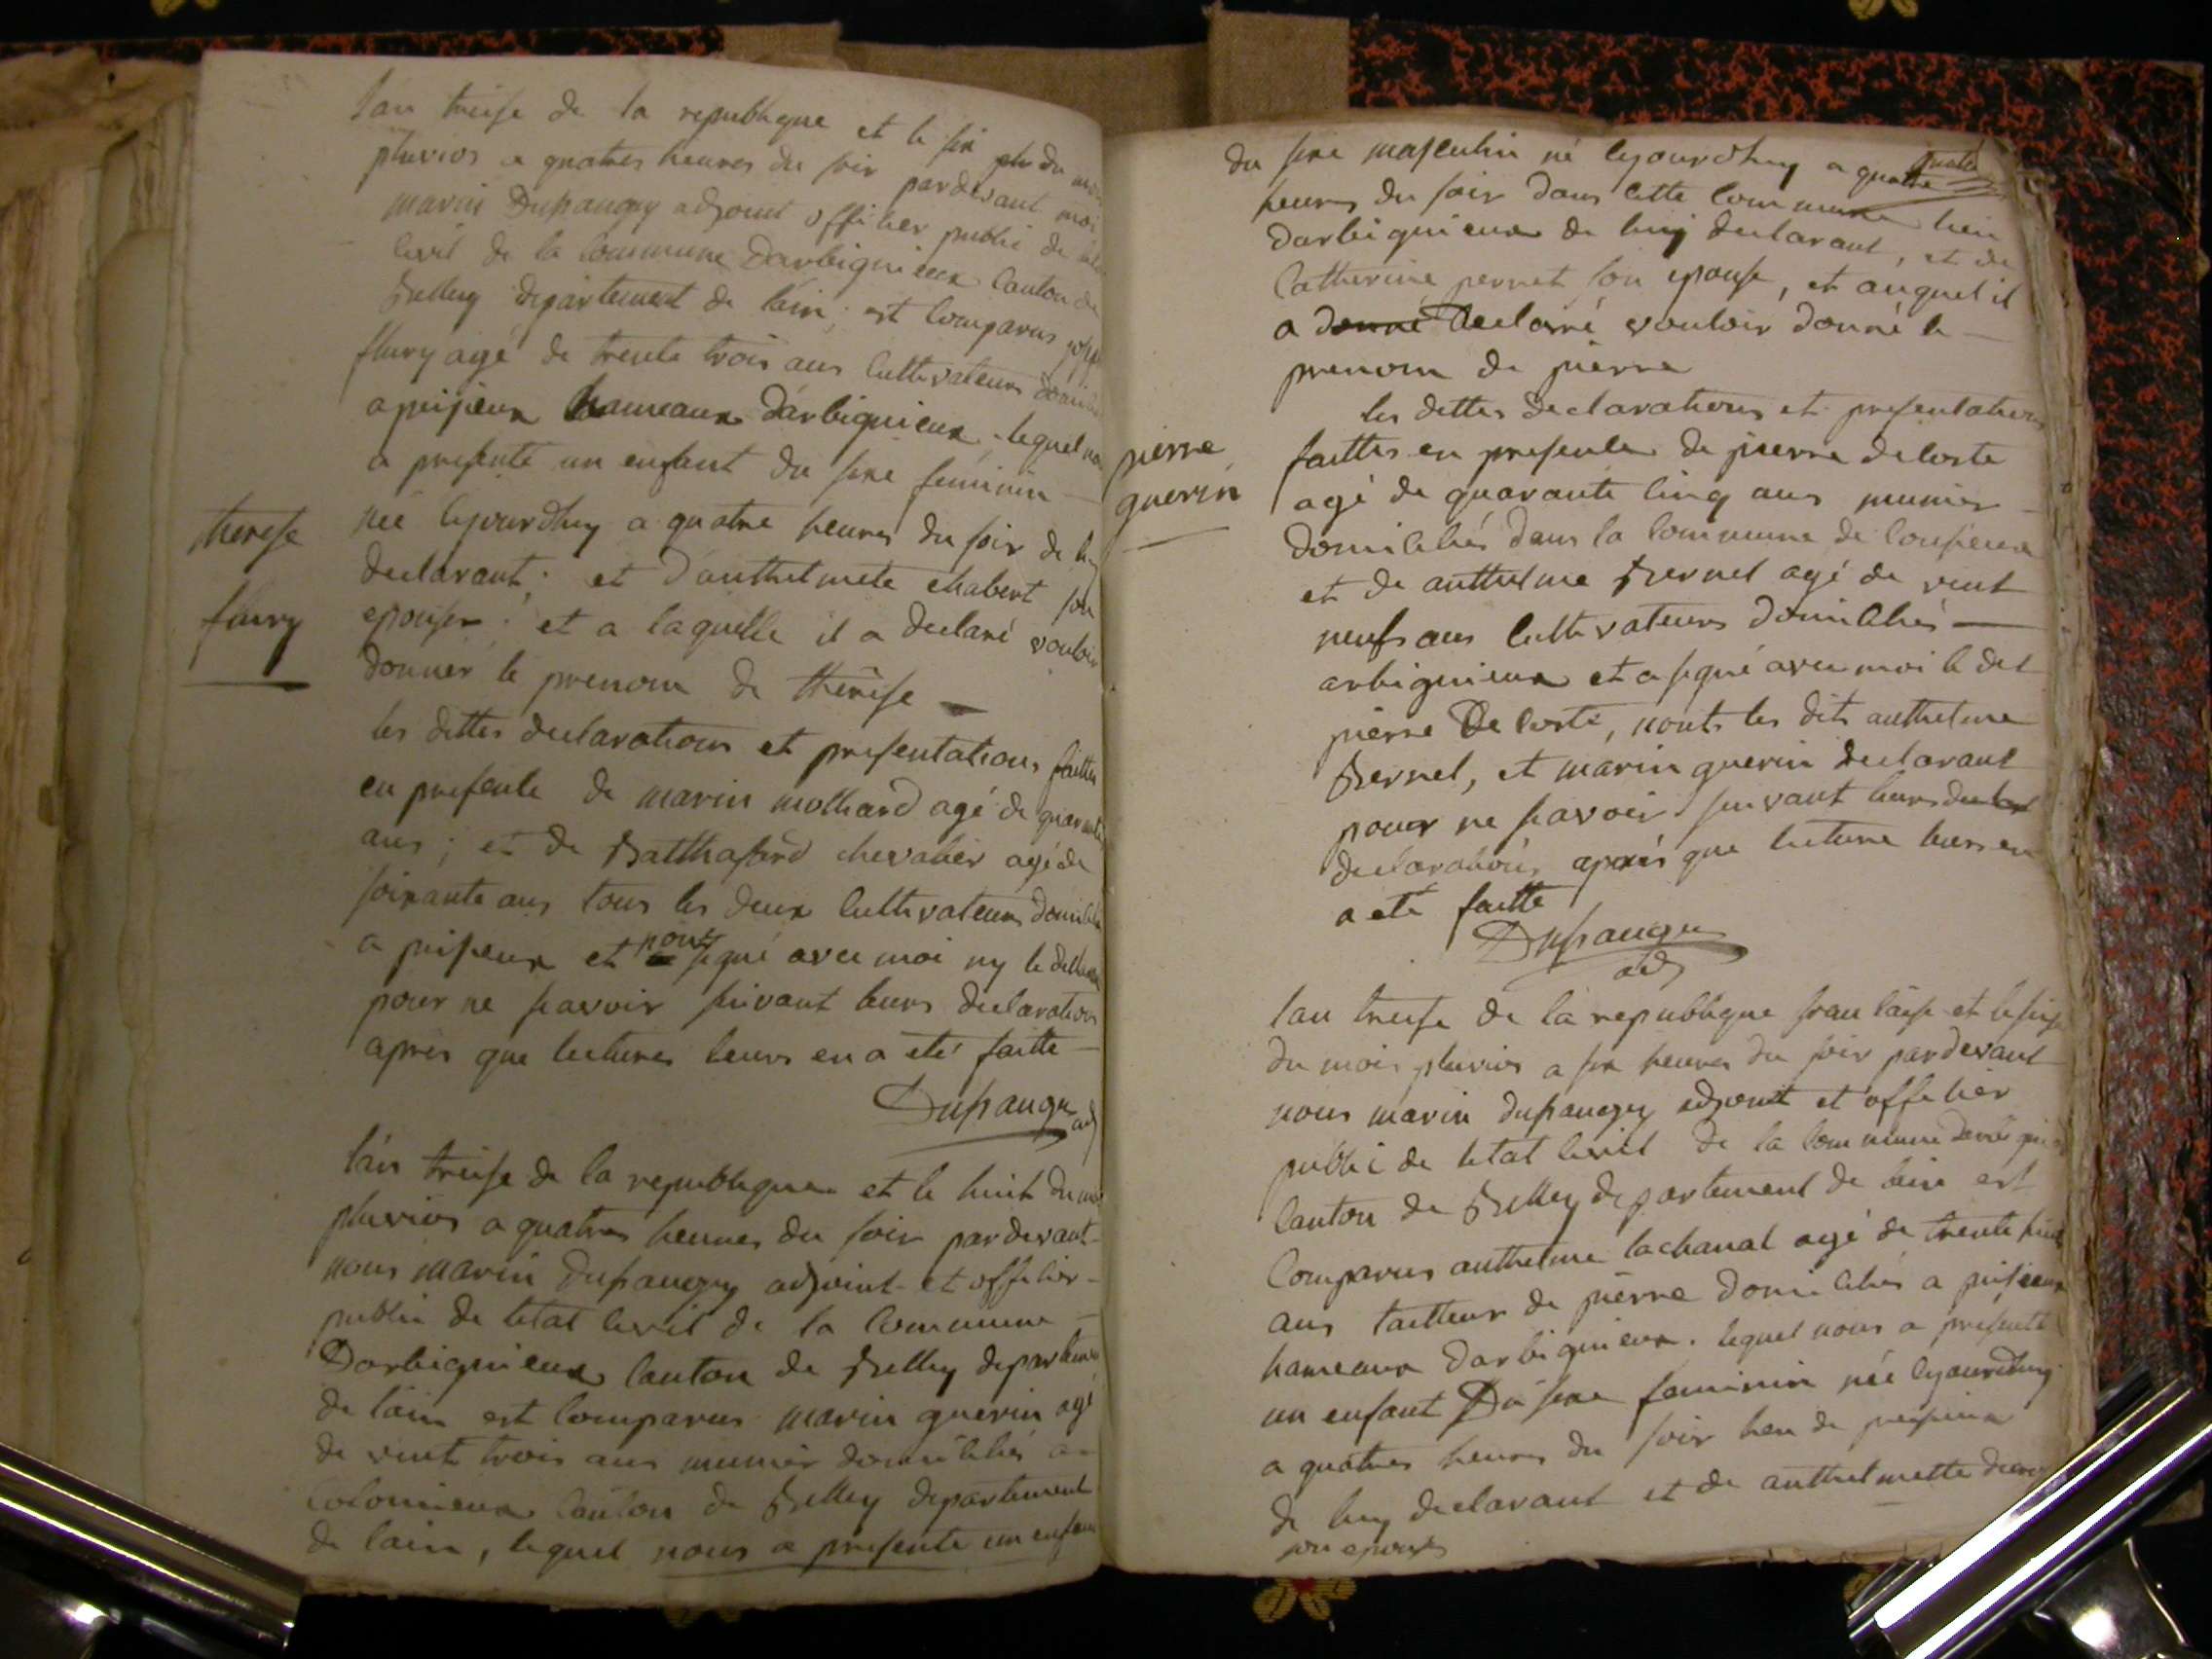 lan treise de la republique et le six du mois
pluvios a quatres heures du soir pardevant moi
marin Dupaugey adjoint officier public de
civil de la commune Darbignieux canton de
Belley département de lain ; est comparus
flury agé de trente trois ans cultivateur
a peisieux hameaux d'arbignieux. lequel
a presenté un enfant du sexe feminin
therese
flury
née cejourdhuy a quatre heures du soir de luy
declarant ; et d'anthelmete chabert son
epouse ; et a laquelle il a declaré vouloir
donner le prenom de thérèse
les dittes declarations et presentations faittes
en presence de marin mollard agé de quarante
ans ; et de Balthasard chevalier agé de
soixante ans tous les deux cultivateurs
a peisieux et nont signé avec moi ny le
pour ne scavoir suivant leurs declarations
après que lecture leurs en a été faitte
Dupaugey adj
lan treise de la republique et le huit du mois
pluvios a quatres heures du soir pardevant
nous marin Dupaugey adjoint et officier
public de letat civil de la commune
Darbignieux canton de Belley departement
de lain est comparus marin guerin agé
de vint trois ans munier domiciliés a
colomieux canton de Belley departement
de lain, lequel nous a presenté un enfant
du sexe masculin né cejourdhuy a quatre quatre
heures du soir dans cette commune lieu
darbignieux de luy declarant, et de
Catherine perret son epouse, et auquel il
a donné declaré vouloir donné le
prenom de pierre
les dittes declarations et presentations
pierre
guerin
faittes en presence de pierre decoste
agé de quarante cinq ans munier
domiciliés dans la commune de
et de anthelme Bernel agé de vint
neufs ans cultivateurs domiciliés
arbignieux et a signé avec moi le dit
pierre Decoste, nont les dits anthelme
Bernel, et marin guerin declarant
pour ne scavoir suivant leurs
declarations après que lecture leurs en
a eté faitte
Dupaugey
adj
lan treise de la republique francaise et le
du mois pluvios a six heures du soir pardevant
nous marin dupaugey adjoint et officier
public de letat civil de la commune
canton de Belley departement de lain est
comparus anthelme lachanal agé de trente
ans tailleur de pierre domiciliés a peisieux
hameaux darbignieux. lequel nous a presenté
un enfant Du sexe feminin née cejourdhuy
a quatres heures du soir lieu de peisieux
de luy declarant et de anthelmette
son epouse